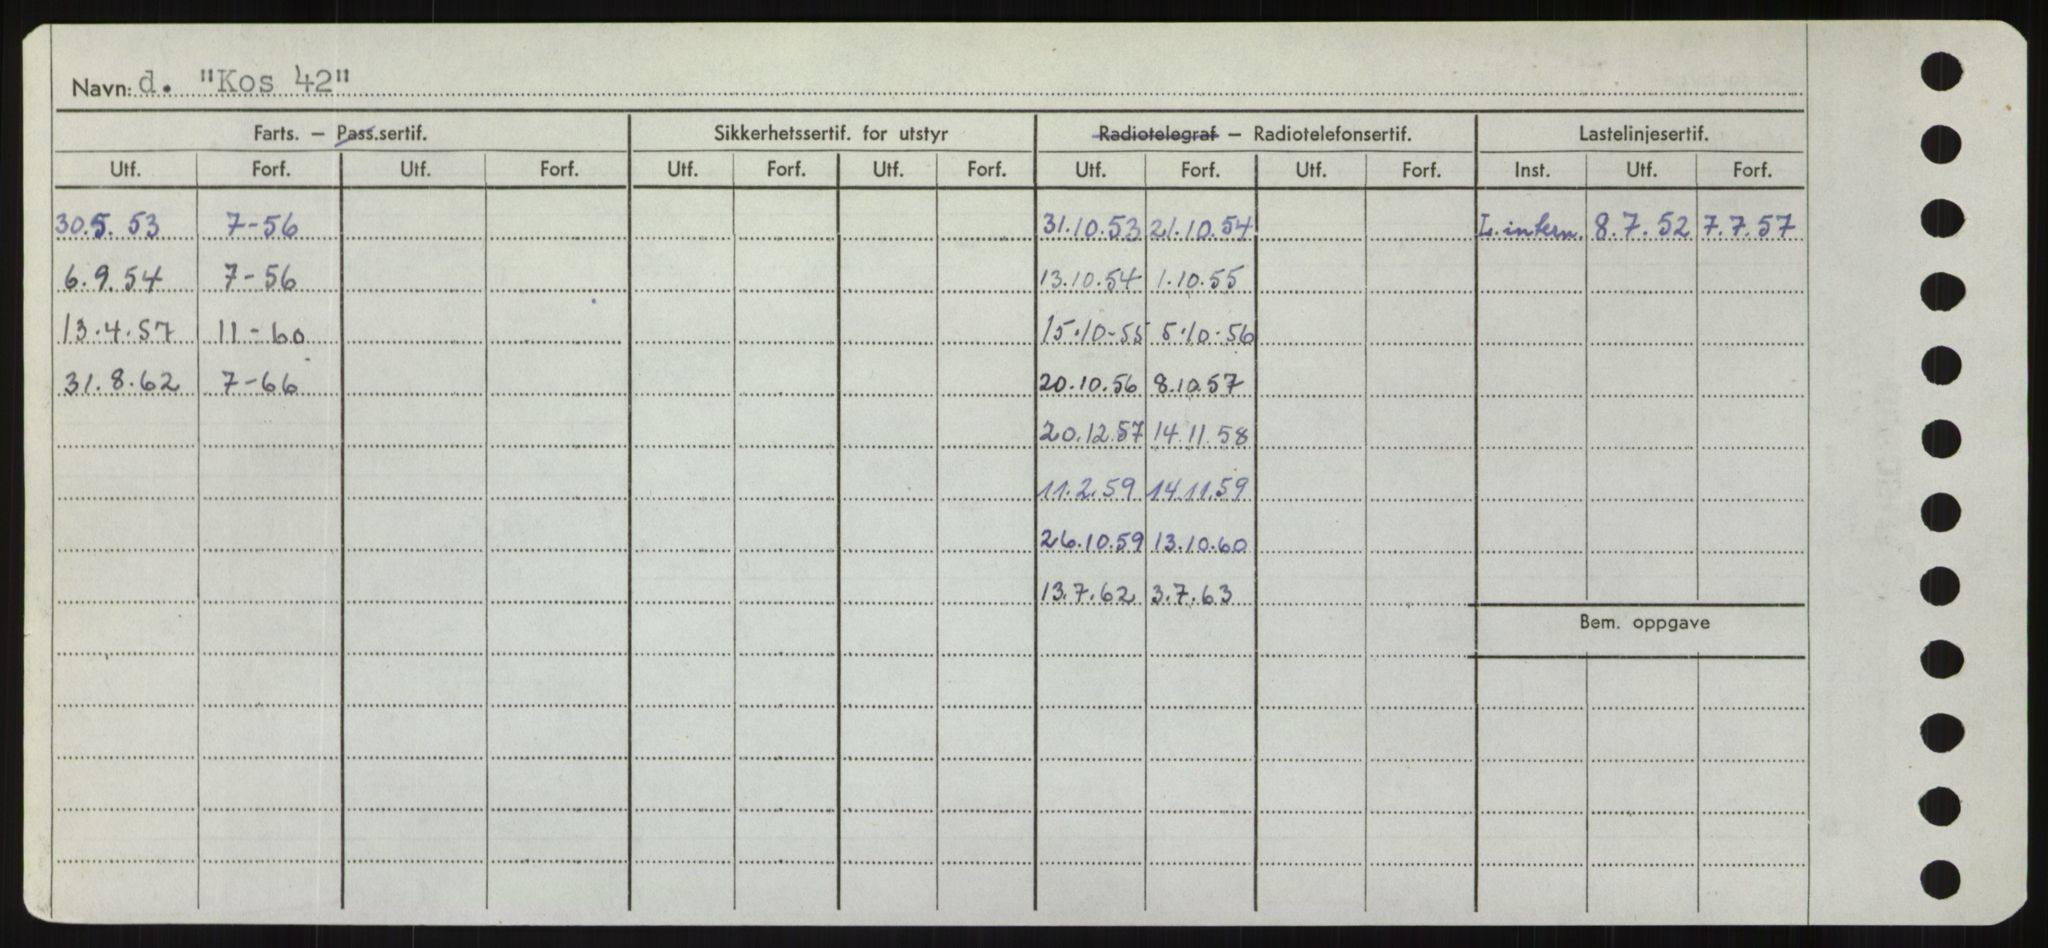 Navn: d. "Kos 42"
Farts. — Pass.sertif. Sikkerhetssertif. for utstyr Radiotelegraf — Radiotelefonsertif. Lastelinjesertif.
Utf. Forf. Utf. Forf. Utf. Forf. Utf. Forf. Utf. Forf. Utf. Forf. Inst. Utf. Forf.
30.5.53 7-56 31.10.53 21.10.54 L. intern. 8.7.52 7.7.57
6.9.54 7-56 13.10.54 1.10.55
13.4.57 11-60 15.10-55 5.10-56
31.8.62 7-66 20.10.56 8.10.57
20.12.57 14.11.58
11.2.59 14.11.59
26.10.59 13.10.60
13.7.62 3.7.63
Bem. oppgave